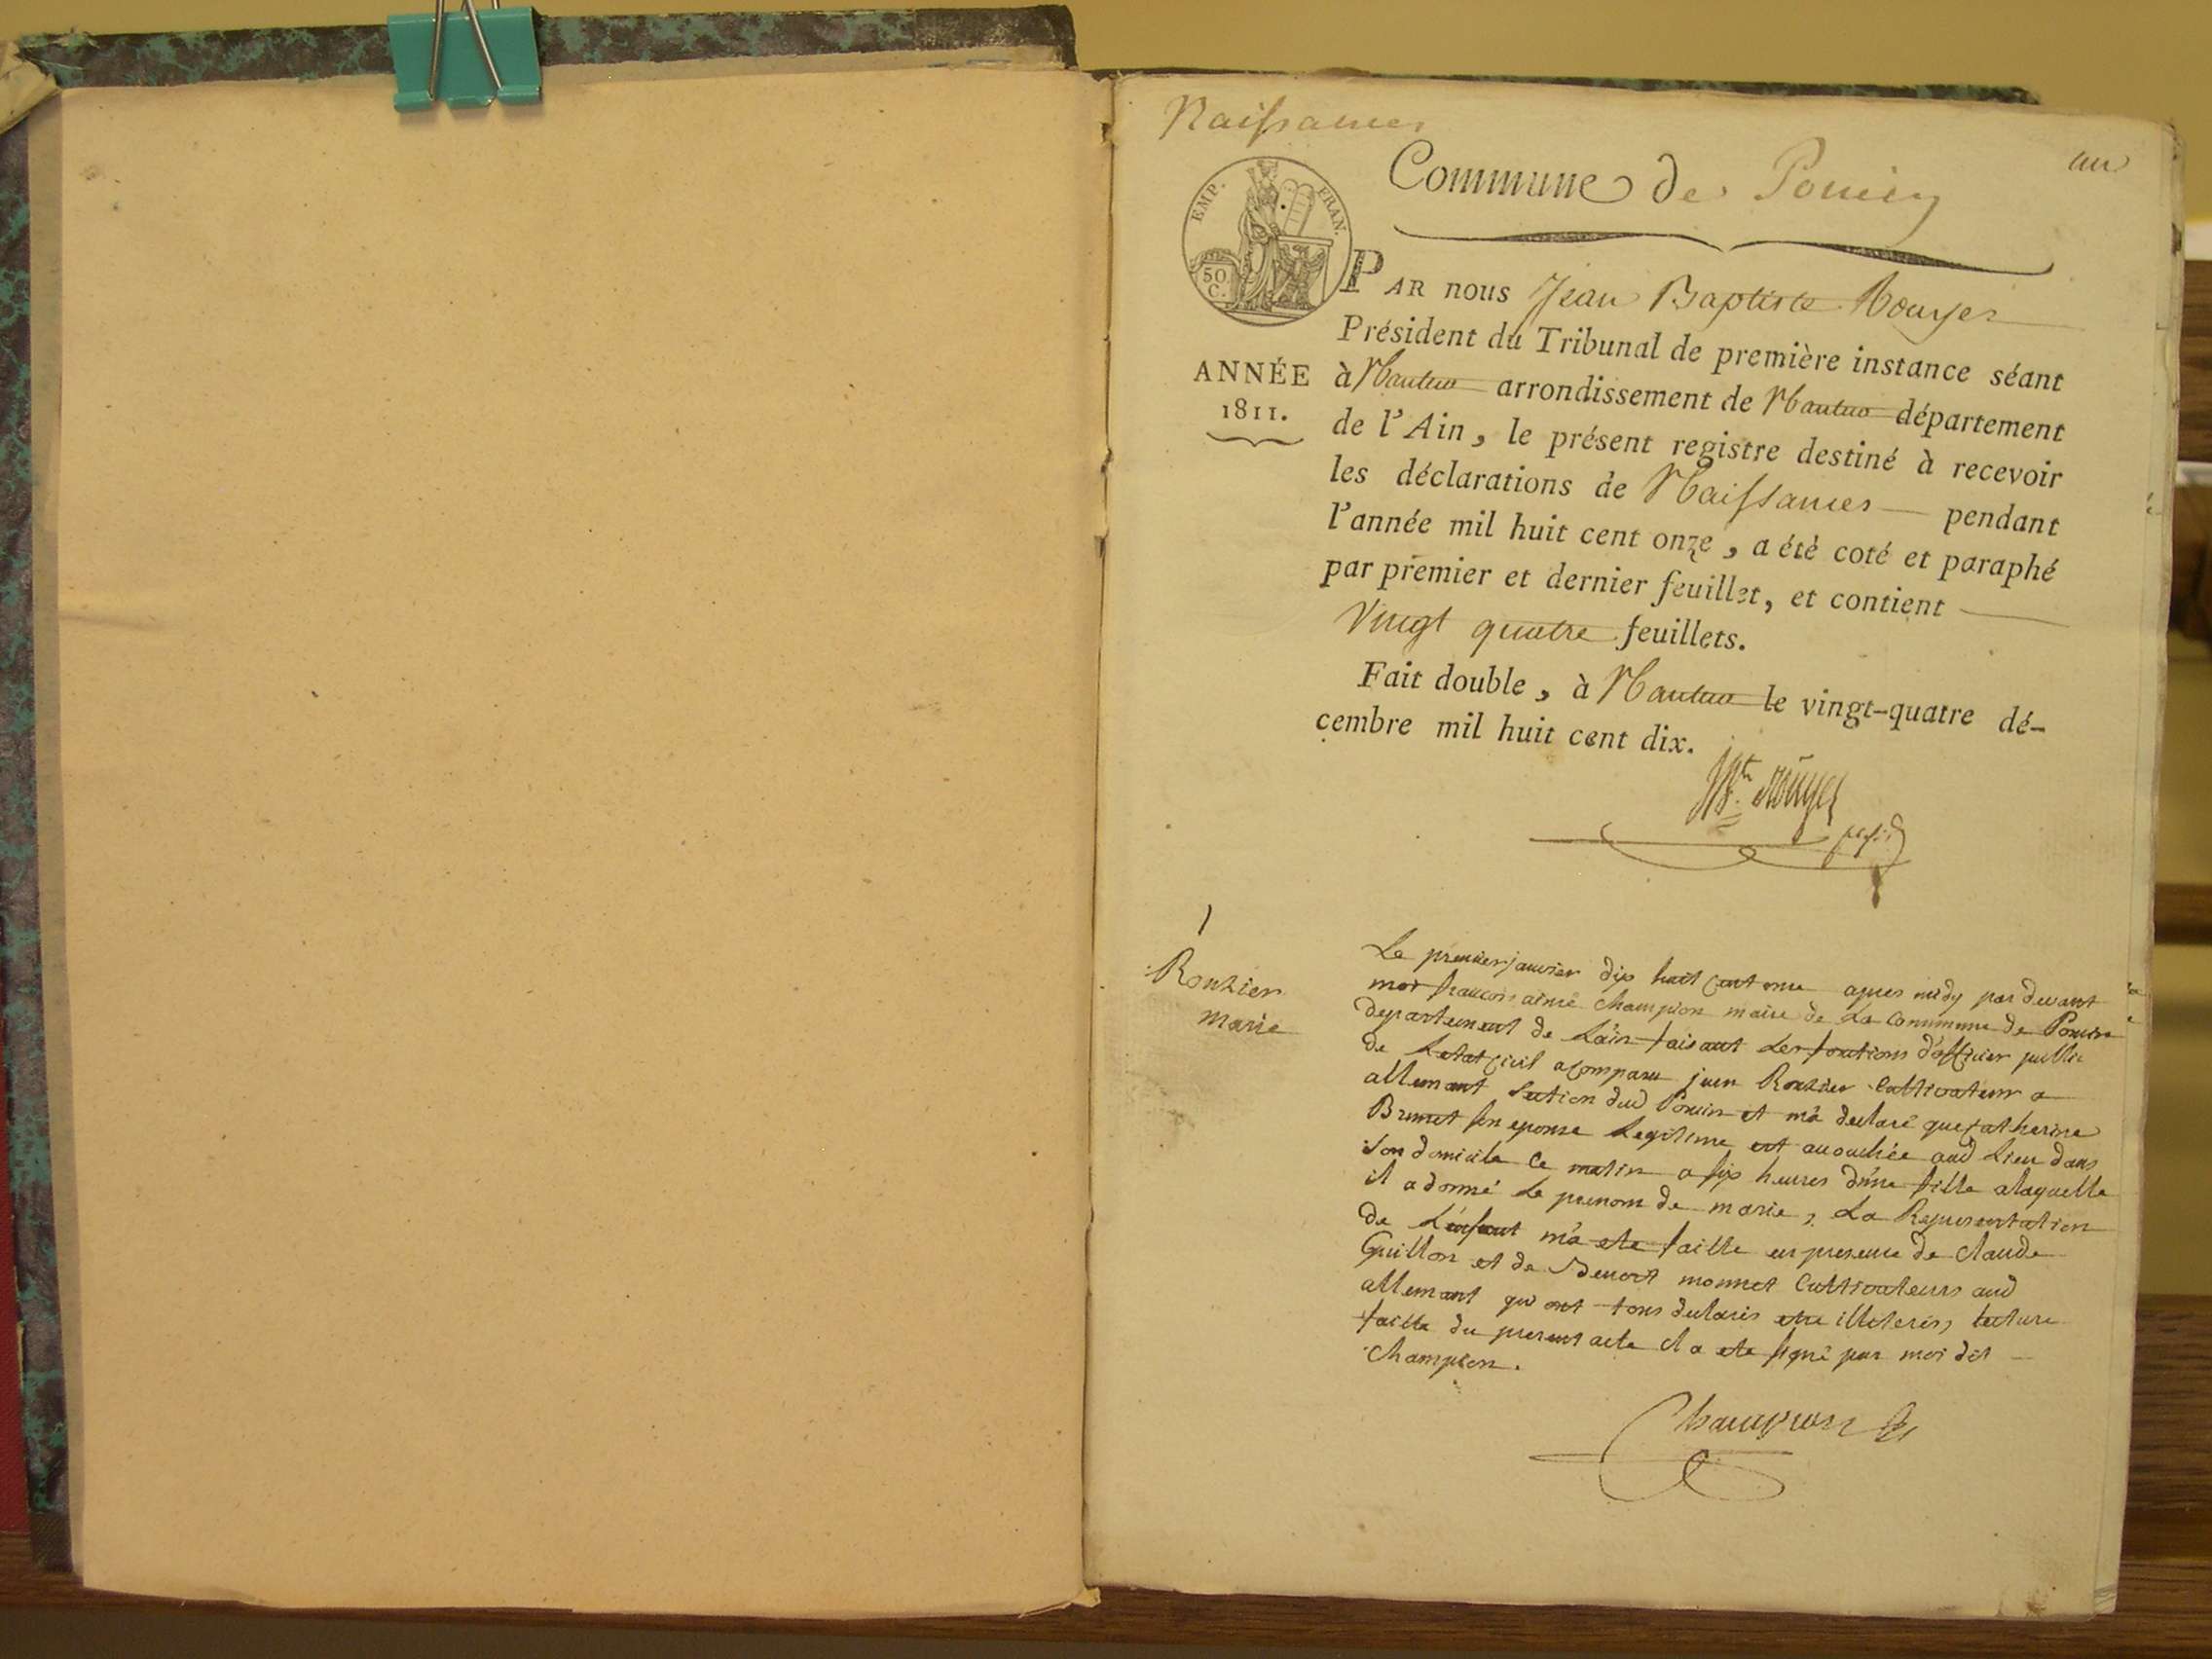 Naissances
un
Commune de Poncin
EMP. FRAN.
50 C.
PAR nous Jean Baptiste Rouyer
Président du Tribunal de première instance séant
ANNÉE
1811.
à Nantua arrondissement de Nantua département
de l'Ain, le présent registre destiné à recevoir
les déclarations de Naissances pendant
l'année mil huit cent onze, a été coté et paraphé
par premier et dernier feuillet, et contient
Vingt quatre feuillets.
Fait double, à Nantua le vingt-quatre dé-
cembre mil huit cent dix.
Rouyer
1
Ronzier
marie
Le premier janvier dix huit cent onze apres midy par devant
moi francois aimé Champion maire de La Commune de Poncin
departement de Lain faisant Les fonctions d'officier public
de Letat Civil a Comparu jean Ronzier Cultivateur a
allemant Section dud Poncin et m'a declaré que Catherine
Brunet son epouse Legitime est accouchée aud Lieu dans
son domicile Ce matin a six heures d'une fille a laquelle
il a donné Le prenom de marie, La Representation
de L'enfant m'a ete faitte en presence de Claude
Guillon et de Benoit monnet Cultivateurs aud
allemant qui ont tous declarés etre illiterés, lecture
faitte du present acte il a ete signé par moi dit
Champion.
Champion